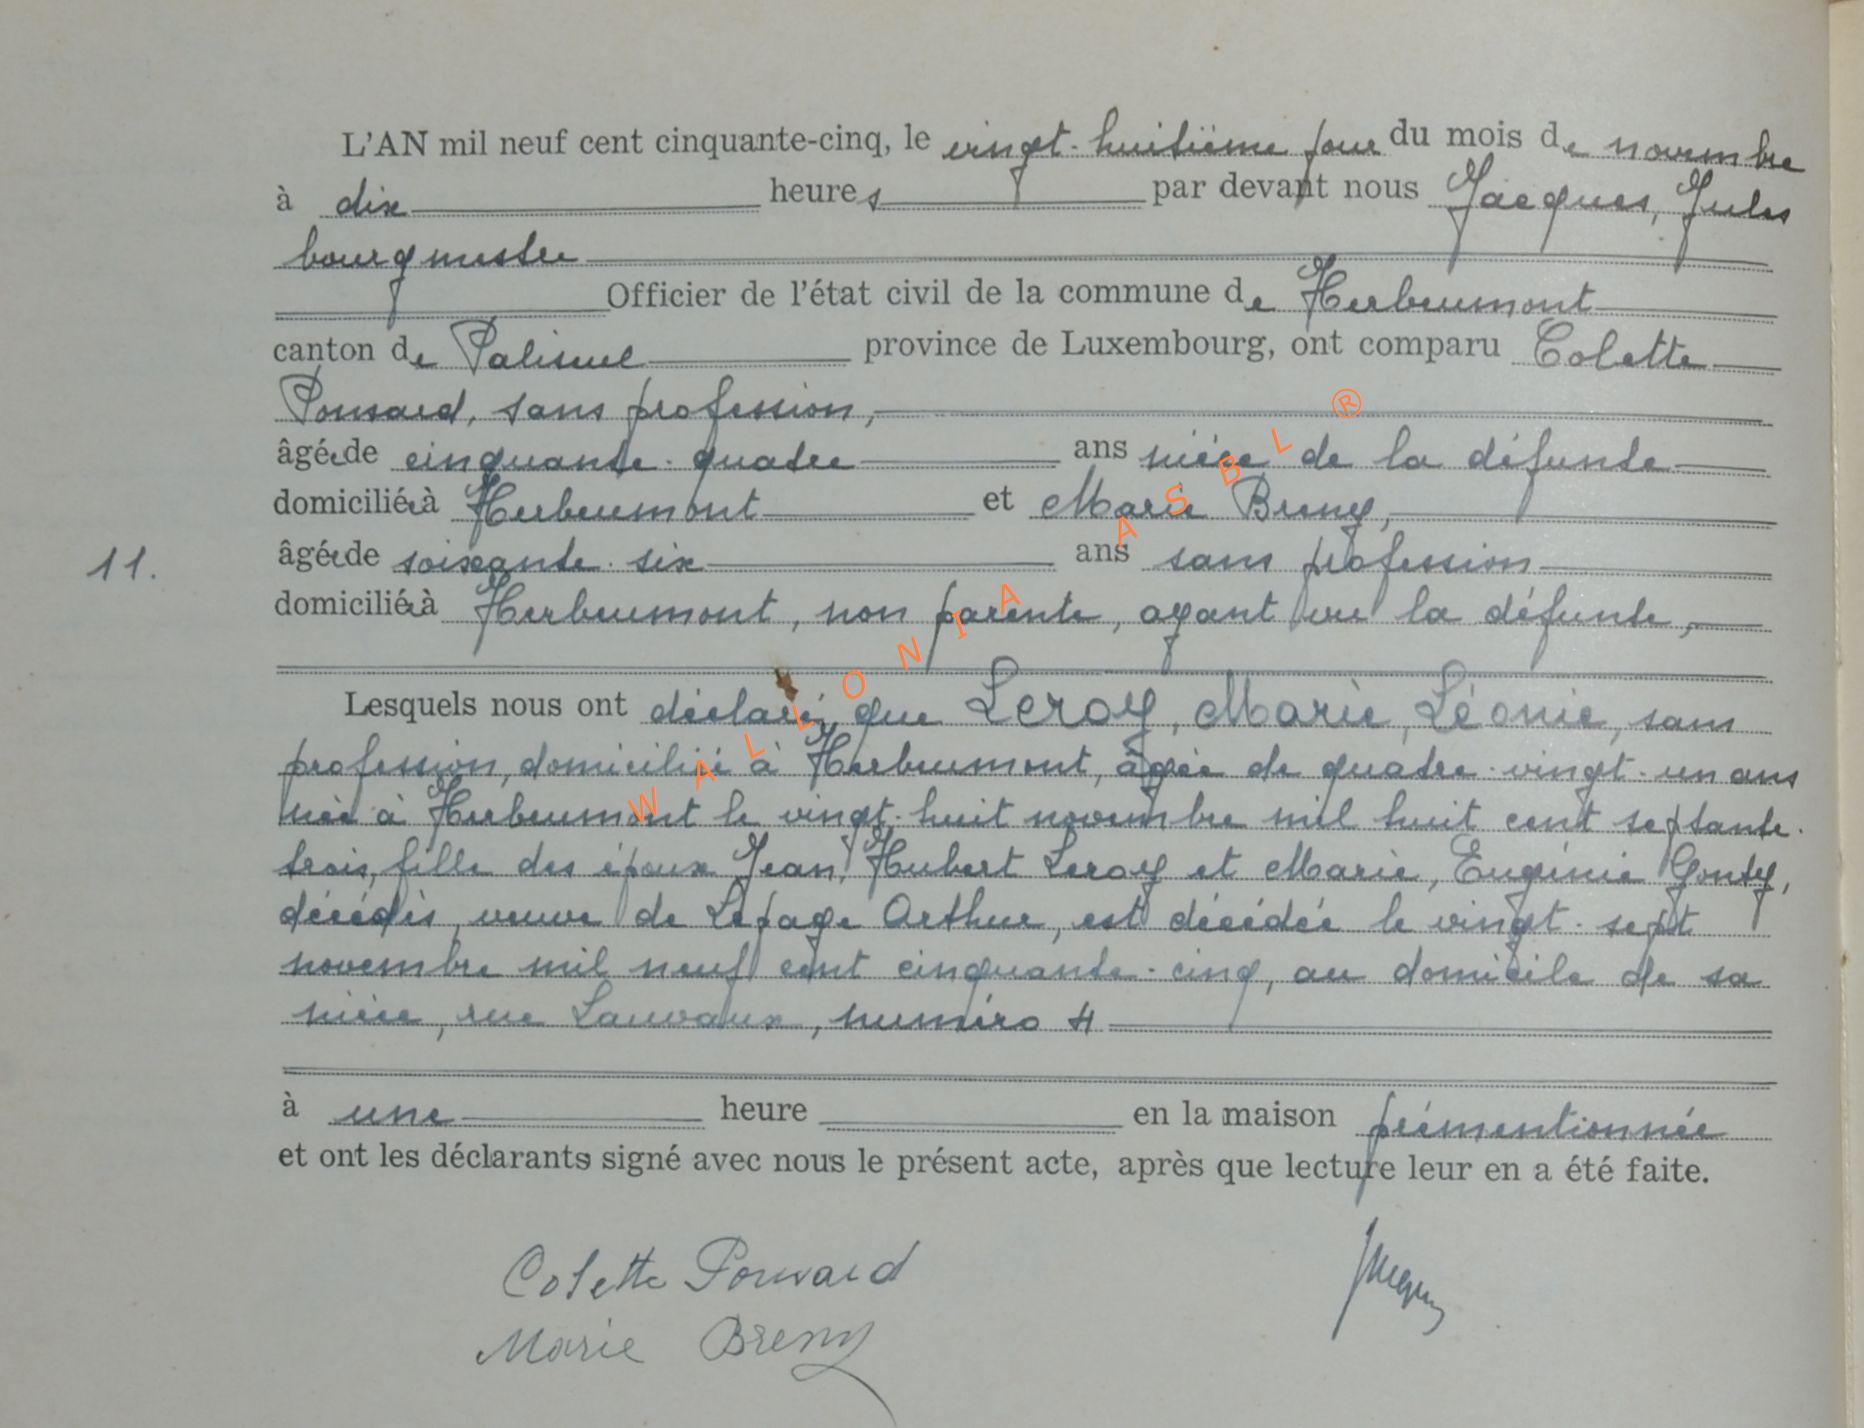 L'AN mil neuf cent cinquante-cinq, le vingt-huitième jour du mois de novembre
à dix heures par devant nous Jacques, Jules
bourgmestre
Officier de l'état civil de la commune de Herbeumont
canton de Paliseul province de Luxembourg, ont comparu Colette
Ponsard, sans profession,
âgée de cinquante-quatre ans nièce de la défunte
domiciliée à Herbeumont et Marie Breny,
11. âgée de soixante-six ans sans profession
domiciliée à Herbeumont, non parente, ayant vu la défunte,
Lesquels nous ont déclaré, que Leroy, Marie, Léonie, sans
profession, domiciliée à Herbeumont, âgée de quatre-vingt-un ans
née à Herbeumont le vingt-huit novembre mil huit cent septante-
trois, fille des époux Jean, Hubert Leroy et Marie, Eugénie Gonty,
décédés, veuve de Lepage Arthur, est décédée le vingt-sept
novembre mil neuf cent cinquante-cinq, au domicile de sa
nièce, rue Lauvaux, numéro 4
à une heure en la maison prémentionnée
et ont les déclarants signé avec nous le présent acte, après que lecture leur en a été faite.
Colette Ponsard
Marie Breny
Jacques
WALLONIA ASBL ®